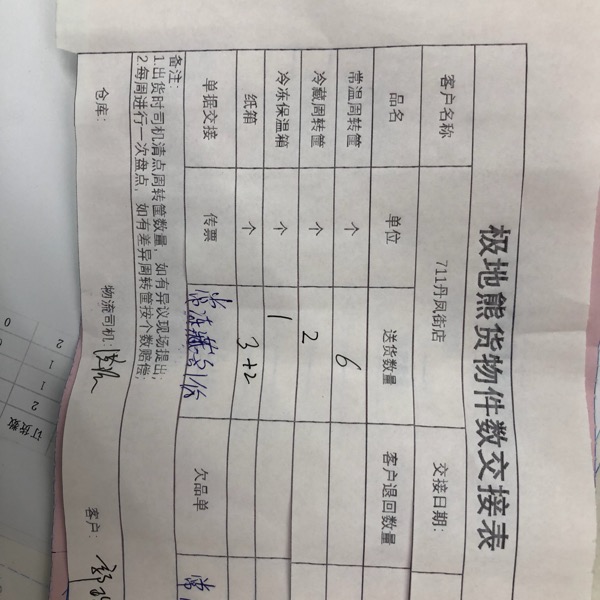 极地熊货物件数交接表
客户名称 711丹凤街店 交接日期：
品名 单位 送货数量 客户退回数量
常温周转筐 个 6
冷藏周转筐 个 2
冷冻保温箱 个 1
纸箱 个 3+2
单据交接 传票 欠品单
备注：
1.出货时司机清点周转筐数量，如有异议现场提出；
2.每周进行一次盘点，如有差异周转筐按个数赔偿；
仓库： 物流司机： 客户：
订货数
2
1
1
2
0